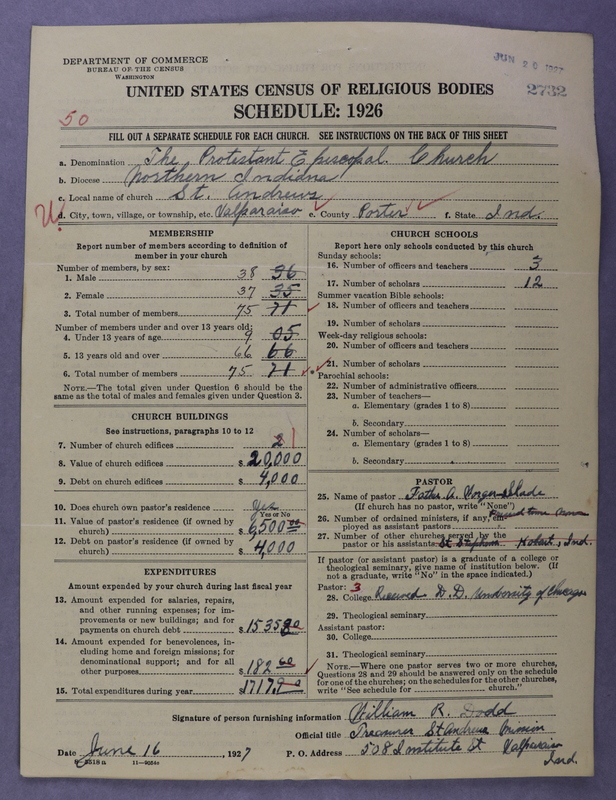 DEPARTMENT OF COMMERCE
BUREAU OF THE CENSUS
WASHINGTON
JUN 20 1927
2732
UNITED STATES CENSUS OF RELIGIOUS BODIES
SCHEDULE: 1926
50
FILL OUT A SEPARATE SCHEDULE FOR EACH CHURCH. SEE INSTRUCTIONS ON THE BACK OF THIS SHEET
a. Denomination The Protestant Episcopal Church
b. Diocese Northern Indiana
c. Local name of church St. Andrews
d. City, town, village, or township, etc. Valparaiso e. County Porter f. State Ind.
MEMBERSHIP
Report number of members according to definition of
member in your church
Number of members, by sex:
1. Male 38 36
2. Female 37 35
3. Total number of members 75 71
Number of members under and over 13 years old:
4. Under 13 years of age 9 05
5. 13 years old and over 66 66
6. Total number of members 75 71
NOTE.—The total given under Question 6 should be
same as the total of males and females given under Question 3.
CHURCH BUILDINGS
See instructions, paragraphs 10 to 12
7. Number of church edifices 2 1
8. Value of church edifices $ 20,000
9. Debt on church edifices $ 4,000
10. Does church own pastor's residence? Yes
Yes or No
11. Value of pastor's residence (if owned by
church) $ 6,500 00
12. Debt on pastor's residence (if owned by
church) $ 4,000
EXPENDITURES
Amount expended by your church during last fiscal year
13. Amount expended for salaries, repairs,
and other running expenses; for im-
provements or new buildings; and for
payments on church debt $ 1535
14. Amount expended for benevolences, in-
cluding home and foreign missions; for
denominational support; and for all
other purposes $ 182 60
15. Total expenditures during year $ 1717
CHURCH SCHOOLS
Report here only schools conducted by this church
Sunday schools:
16. Number of officers and teachers 3
17. Number of scholars 12
Summer vacation Bible schools:
18. Number of officers and teachers
19. Number of scholars
Week-day religious schools:
20. Number of officers and teachers
21. Number of scholars
Parochial schools:
22. Number of administrative officers
23. Number of teachers—
a. Elementary (grades 1 to 8)
b. Secondary
24. Number of scholars—
a. Elementary (grades 1 to 8)
b. Secondary
PASTOR
25. Name of pastor Father A. Slade
(If church has no pastor, write "None")
26. Number of ordained ministers, if any, em-
ployed as assistant pastors
27. Number of other churches served by the
pastor or his assistants St Stephens Hobart, Ind.
If pastor (or assistant pastor) is a graduate of a college or
theological seminary, give name of institution below. (If
not a graduate, write "No" in the space indicated.)
Pastor: 3
28. College Received D.D. University of Chicago
29. Theological seminary
Assistant pastor:
30. College
31. Theological seminary
NOTE.—Where one pastor serves two or more churches,
Questions 28 and 29 should be answered only on the schedule
for one of the churches; on the schedules for the other churches,
write "See schedule for church."
Signature of person furnishing information William R. Dodd
Official title Treasurer St Andrews Mission
Date June 16, 1927 P. O. Address 508 Institute St Valparaiso
Ind.
8518 a 11—9084